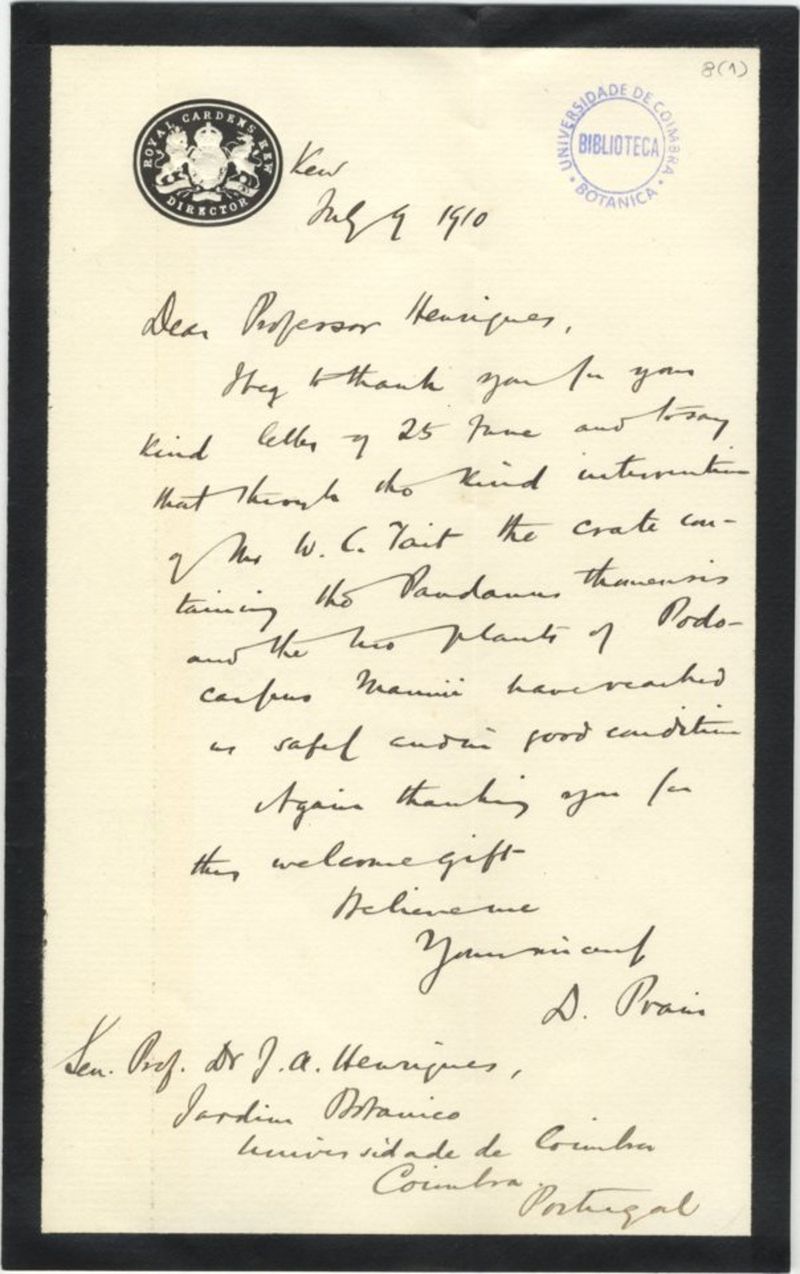 8(1)
ROYAL GARDENS KEW
DIRECTOR
UNIVERSIDADE DE COIMBRA
BIBLIOTECA
BOTANICA
Kew
July 9 1910
Dear Professor Henriques,
I beg to thank you for your
kind letter of 25 June and to say
that through the kind intervention
of Mr W. C. Tait the crate con-
taining the Pandanus thomensis
and the two plants of Podo-
carpus Mannii have reached
us safely and in good condition
Again thanking you for
this welcome gift
Believe me
Yours sincerely
D. Prain
Sen. Prof. Dr J. A. Henriques,
Jardim Botanico
Universidade de Coimbra
Coimbra.
Portugal